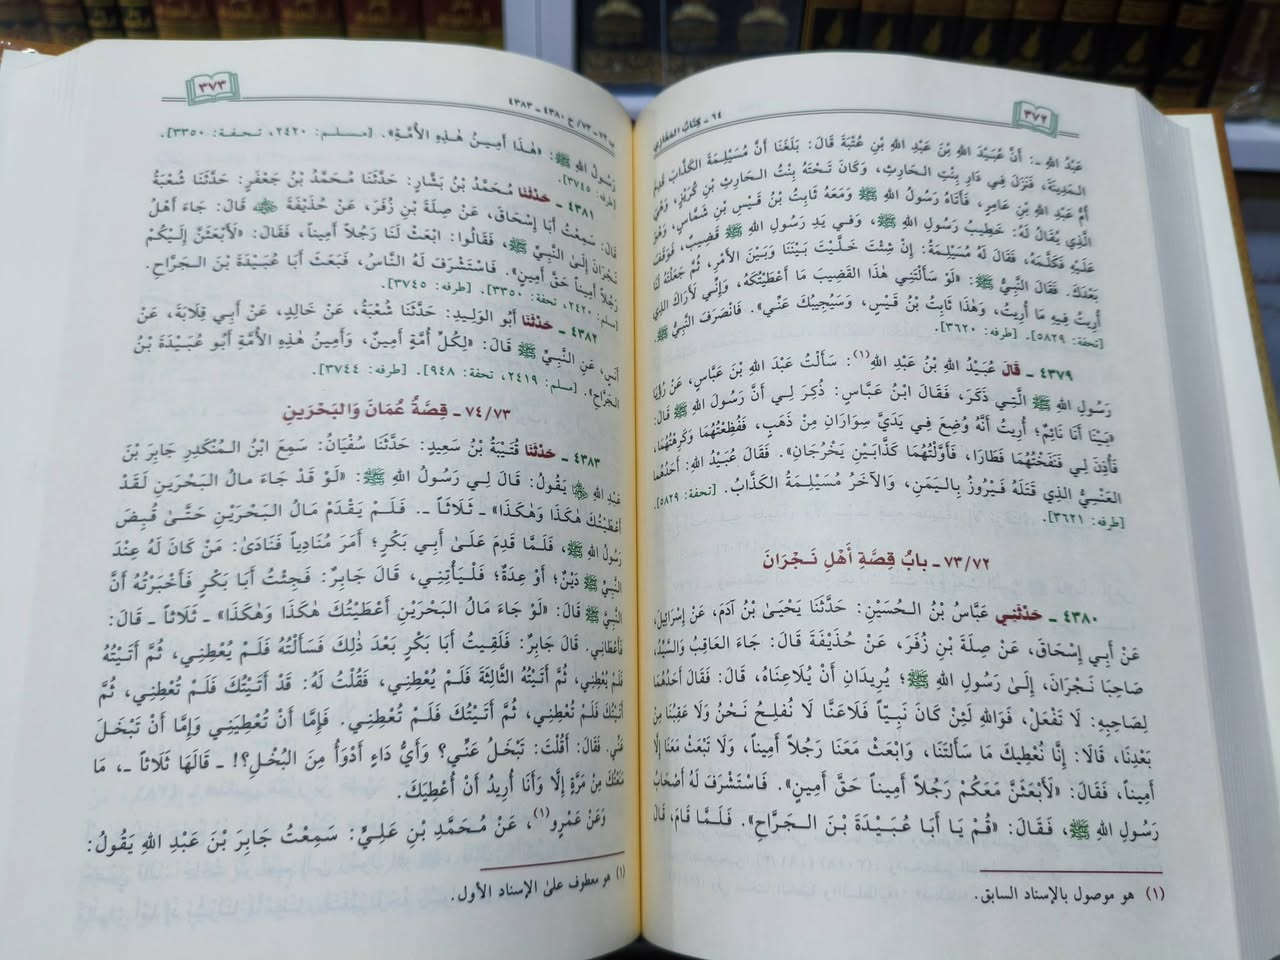 ٣٧٢
٦٤ - كِتَابُ المَغَازِي
عَبْدُ اللهِ -: أَنَّ عُبَيْدَ اللهِ بْنَ عَبْدِ اللهِ بْنِ عُتْبَةَ قَالَ: بَلَغَنَا أَنَّ مُسَيْلِمَةَ الكَذَّابَ قَدِمَ
المَدِينَةَ، فَنَزَلَ فِي دَارِ بِنْتِ الحَارِثِ، وَكَانَ تَحْتَهُ بِنْتُ الحَارِثِ بْنِ كُرَيْزٍ، وَهْيَ
أُمُّ عَبْدِ اللهِ بْنِ عَامِرٍ، فَأَتَاهُ رَسُولُ اللهِ ﷺ وَمَعَهُ ثَابِتُ بْنُ قَيْسِ بْنِ شَمَّاسٍ، وَهْوَ
الَّذِي يُقَالُ لَهُ: خَطِيبُ رَسُولِ اللهِ ﷺ، وَفِي يَدِ رَسُولِ اللهِ ﷺ قَضِيبٌ، فَوَقَفَ
عَلَيْهِ فَكَلَّمَهُ، فَقَالَ لَهُ مُسَيْلِمَةُ: إِنْ شِئْتَ خَلَّيْتَ بَيْنَنَا وَبَيْنَ الأَمْرِ، ثُمَّ جَعَلْتَهُ لَنَا
بَعْدَكَ. فَقَالَ النَّبِيُّ ﷺ: «لَوْ سَأَلْتَنِي هٰذَا القَضِيبَ مَا أَعْطَيْتُكَهُ، وَإِنِّي لَأَرَاكَ الَّذِي
أُرِيتُ فِيهِ مَا أُرِيتُ، وَهٰذَا ثَابِتُ بْنُ قَيْسٍ، وَسَيُجِيبُكَ عَنِّي». فَانْصَرَفَ النَّبِيُّ ﷺ.
[تحفة: ٥٨٢٩]. [طرفه: ٣٦٢٠].
٤٣٧٩ - قَالَ عُبَيْدُ اللهِ بْنُ عَبْدِ اللهِ(١): سَأَلْتُ عَبْدَ اللهِ بْنَ عَبَّاسٍ، عَنْ رُؤْيَا
رَسُولِ اللهِ ﷺ الَّتِي ذَكَرَ، فَقَالَ ابْنُ عَبَّاسٍ: ذُكِرَ لِي أَنَّ رَسُولَ اللهِ ﷺ قَالَ:
«بَيْنَا أَنَا نَائِمٌ؛ أُرِيتُ أَنَّهُ وُضِعَ فِي يَدَيَّ سِوَارَانِ مِنْ ذَهَبٍ، فَفُظِعْتُهُمَا وَكَرِهْتُهُمَا،
فَأُذِنَ لِي فَنَفَخْتُهُمَا فَطَارَا، فَأَوَّلْتُهُمَا كَذَّابَيْنِ يَخْرُجَانِ». فَقَالَ عُبَيْدُ اللهِ: أَحَدُهُمَا
العَنْسِيُّ الَّذِي قَتَلَهُ فَيْرُوزُ بِاليَمَنِ، وَالآخَرُ مُسَيْلِمَةُ الكَذَّابُ. [تحفة: ٥٨٢٩].
[طرفه: ٣٦٢١].
٧٣/٧٢ - بابُ قِصَّةِ أَهْلِ نَجْرَانَ
٤٣٨٠ - حَدَّثَنِي عَبَّاسُ بْنُ الحُسَيْنِ: حَدَّثَنَا يَحْيَىٰ بْنُ آدَمَ، عَنْ إِسْرَائِيلَ،
عَنْ أَبِي إِسْحَاقَ، عَنْ صِلَةَ بْنِ زُفَرَ، عَنْ حُذَيْفَةَ قَالَ: جَاءَ العَاقِبُ وَالسَّيِّدُ،
صَاحِبَا نَجْرَانَ، إِلَىٰ رَسُولِ اللهِ ﷺ؛ يُرِيدَانِ أَنْ يُلَاعِنَاهُ، قَالَ: فَقَالَ أَحَدُهُمَا
لِصَاحِبِهِ: لَا تَفْعَلْ، فَوَاللهِ لَئِنْ كَانَ نَبِيّاً فَلَاعَنَّا لَا نُفْلِحُ نَحْنُ وَلَا عَقِبُنَا مِنْ
بَعْدِنَا، قَالَا: إِنَّا نُعْطِيكَ مَا سَأَلْتَنَا، وَابْعَثْ مَعَنَا رَجُلاً أَمِيناً، وَلَا تَبْعَثْ مَعَنَا إِلَّا
أَمِيناً، فَقَالَ: «لَأَبْعَثَنَّ مَعَكُمْ رَجُلاً أَمِيناً حَقَّ أَمِينٍ». فَاسْتَشْرَفَ لَهُ أَصْحَابُ
رَسُولِ اللهِ ﷺ، فَقَالَ: «قُمْ يَا أَبَا عُبَيْدَةَ بْنَ الجَرَّاحِ». فَلَمَّا قَامَ، قَالَ
(١) هو موصول بالإسناد السابق.
٣٧٣
ب ٧٢ - ٧٣/ ح ٤٣٨٠ - ٤٣٨٣
رَسُولُ اللهِ ﷺ: «هٰذَا أَمِينُ هٰذِهِ الأُمَّةِ». [مسلم: ٢٤٢٠، تحفة: ٣٣٥٠].
[طرفه: ٣٧٤٥].
٤٣٨١ - حَدَّثَنَا مُحَمَّدُ بْنُ بَشَّارٍ: حَدَّثَنَا مُحَمَّدُ بْنُ جَعْفَرٍ: حَدَّثَنَا شُعْبَةُ
قَالَ: سَمِعْتُ أَبَا إِسْحَاقَ، عَنْ صِلَةَ بْنِ زُفَرَ، عَنْ حُذَيْفَةَ رضي الله عنه قَالَ: جَاءَ أَهْلُ
نَجْرَانَ إِلَىٰ النَّبِيِّ ﷺ، فَقَالُوا: ابْعَثْ لَنَا رَجُلاً أَمِيناً، فَقَالَ: «لَأَبْعَثَنَّ إِلَيْكُمْ
رَجُلاً أَمِيناً حَقَّ أَمِينٍ». فَاسْتَشْرَفَ لَهُ النَّاسُ، فَبَعَثَ أَبَا عُبَيْدَةَ بْنَ الجَرَّاحِ.
[مسلم: ٢٤٢٠، تحفة: ٣٣٥٠]. [طرفه: ٣٧٤٥].
٤٣٨٢ - حَدَّثَنَا أَبُو الوَلِيدِ: حَدَّثَنَا شُعْبَةُ، عَنْ خَالِدٍ، عَنْ أَبِي قِلَابَةَ، عَنْ
أَنَسٍ، عَنِ النَّبِيِّ ﷺ قَالَ: «لِكُلِّ أُمَّةٍ أَمِينٌ، وَأَمِينُ هٰذِهِ الأُمَّةِ أَبُو عُبَيْدَةَ بْنُ
الجَرَّاحِ». [مسلم: ٢٤١٩، تحفة: ٩٤٨]. [طرفه: ٣٧٤٤].
٧٤/٧٣ - قِصَّةُ عُمَانَ وَالبَحْرَيْنِ
٤٣٨٣ - حَدَّثَنَا قُتَيْبَةُ بْنُ سَعِيدٍ: حَدَّثَنَا سُفْيَانُ: سَمِعَ ابْنُ المُنْكَدِرِ جَابِرَ بْنَ
عَبْدِ اللهِ رضي الله عنهما يَقُولُ: قَالَ لِي رَسُولُ اللهِ ﷺ: «لَوْ قَدْ جَاءَ مالُ البَحْرَيْنِ لَقَدْ
أَعْطَيْتُكَ هٰكَذَا وَهٰكَذَا» - ثَلَاثاً -. فَلَمْ يَقْدَمْ مَالُ البَحْرَيْنِ حَتَّىٰ قُبِضَ
رَسُولُ اللهِ ﷺ، فَلَمَّا قَدِمَ عَلَىٰ أَبِي بَكْرٍ؛ أَمَرَ مُنَادِياً فَنَادَىٰ: مَنْ كَانَ لَهُ عِنْدَ
النَّبِيِّ ﷺ دَيْنٌ؛ أَوْ عِدَةٌ؛ فَلْيَأْتِنِي، قَالَ جَابِرٌ: فَجِئْتُ أَبَا بَكْرٍ فَأَخْبَرْتُهُ أَنَّ
النَّبِيَّ ﷺ قَالَ: «لَوْ جَاءَ مَالُ البَحْرَيْنِ أَعْطَيْتُكَ هٰكَذَا وَهٰكَذَا» - ثَلَاثاً - قَالَ:
فَأَعْطَانِي. قَالَ جَابِرٌ: فَلَقِيتُ أَبَا بَكْرٍ بَعْدَ ذٰلِكَ فَسَأَلْتُهُ فَلَمْ يُعْطِنِي، ثُمَّ أَتَيْتُهُ
فَلَمْ يُعْطِنِي، ثُمَّ أَتَيْتُهُ الثَّالِثَةَ فَلَمْ يُعْطِنِي، فَقُلْتُ لَهُ: قَدْ أَتَيْتُكَ فَلَمْ تُعْطِنِي، ثُمَّ
أَتَيْتُكَ فَلَمْ تُعْطِنِي، ثُمَّ أَتَيْتُكَ فَلَمْ تُعْطِنِي. فَإِمَّا أَنْ تُعْطِيَنِي وَإِمَّا أَنْ تَبْخَلَ
عَنِّي. فَقَالَ: أَقُلْتَ: تَبْخَلُ عَنِّي؟ وَأَيُّ دَاءٍ أَدْوَأُ مِنَ البُخْلِ؟! - قَالَهَا ثَلَاثاً -، مَا
مَنَعْتُكَ مِنْ مَرَّةٍ إِلَّا وَأَنَا أُرِيدُ أَنْ أُعْطِيَكَ.
وَعَنْ عَمْرٍو(١)، عَنْ مُحَمَّدِ بْنِ عَلِيٍّ: سَمِعْتُ جَابِرَ بْنَ عَبْدِ اللهِ يَقُولُ:
(١) هو معطوف علىٰ الإسناد الأول.